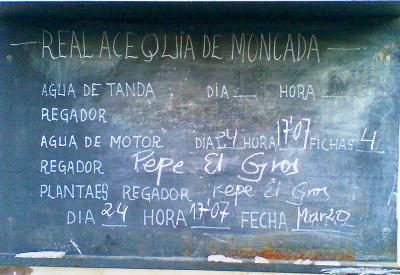 REAL ACEQUIA DE MONCADA
AGUA DE TANDA DIA HORA
REGADOR
AGUA DE MOTOR DIA 24 HORA 17'07 FICHAS 4
REGADOR Pepe El Gros
PLANTAES REGADOR Pepe El Gros
DIA 24 HORA 17'07 FECHA Marzo